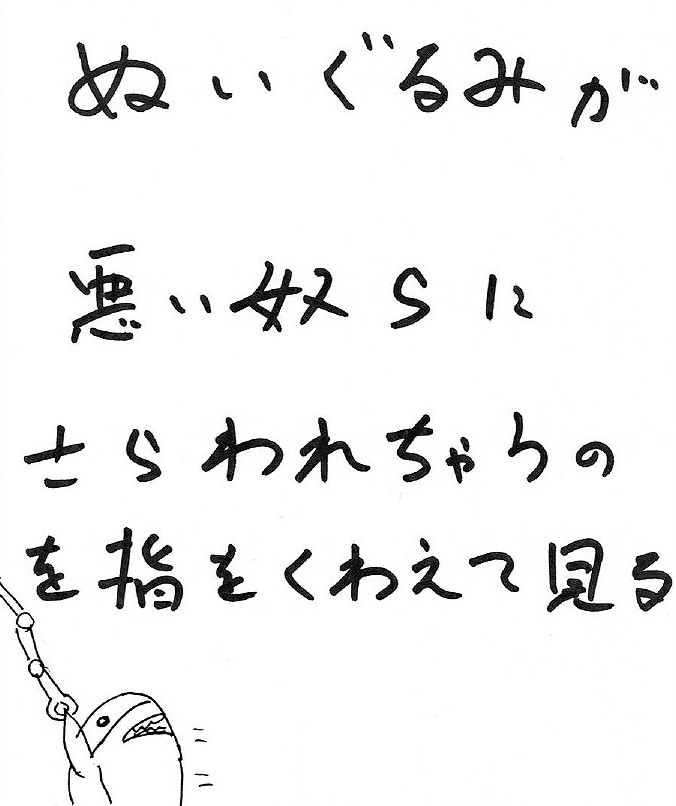 ぬいぐるみが
悪い奴らに
さらわれちゃうの
を指をくわえて見る